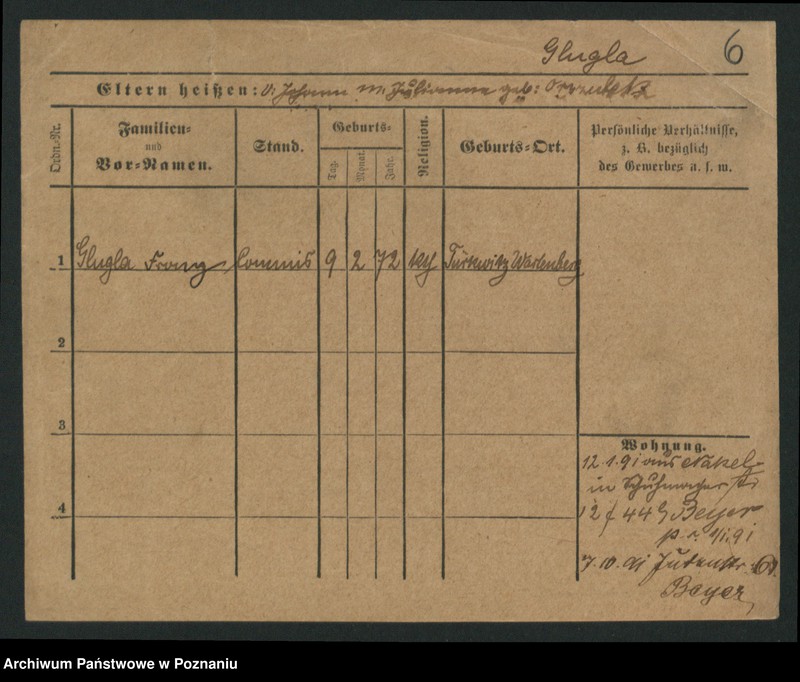 Glugla 6
Eltern heißen: v. Johann m. Julianna geb:
Ordn.-Nr. Familien- und Vor-Namen. Stand. Geburts- Tag. Monat. Jahr. Religion. Geburts-Ort. Persönliche Verhältnisse, z. B. bezüglich des Gewerbes u. s. w.
1 Glugla Franz Commis 9 2 72 kth Türkwitz Wartenberg
2
3
4
Wohnung.
12.1.91 aus Nakel
in Schuhmacher
12 44 Beyer
1/1.91
7.10.91 Judenstr.
Beyer
Archiwum Państwowe w Poznaniu